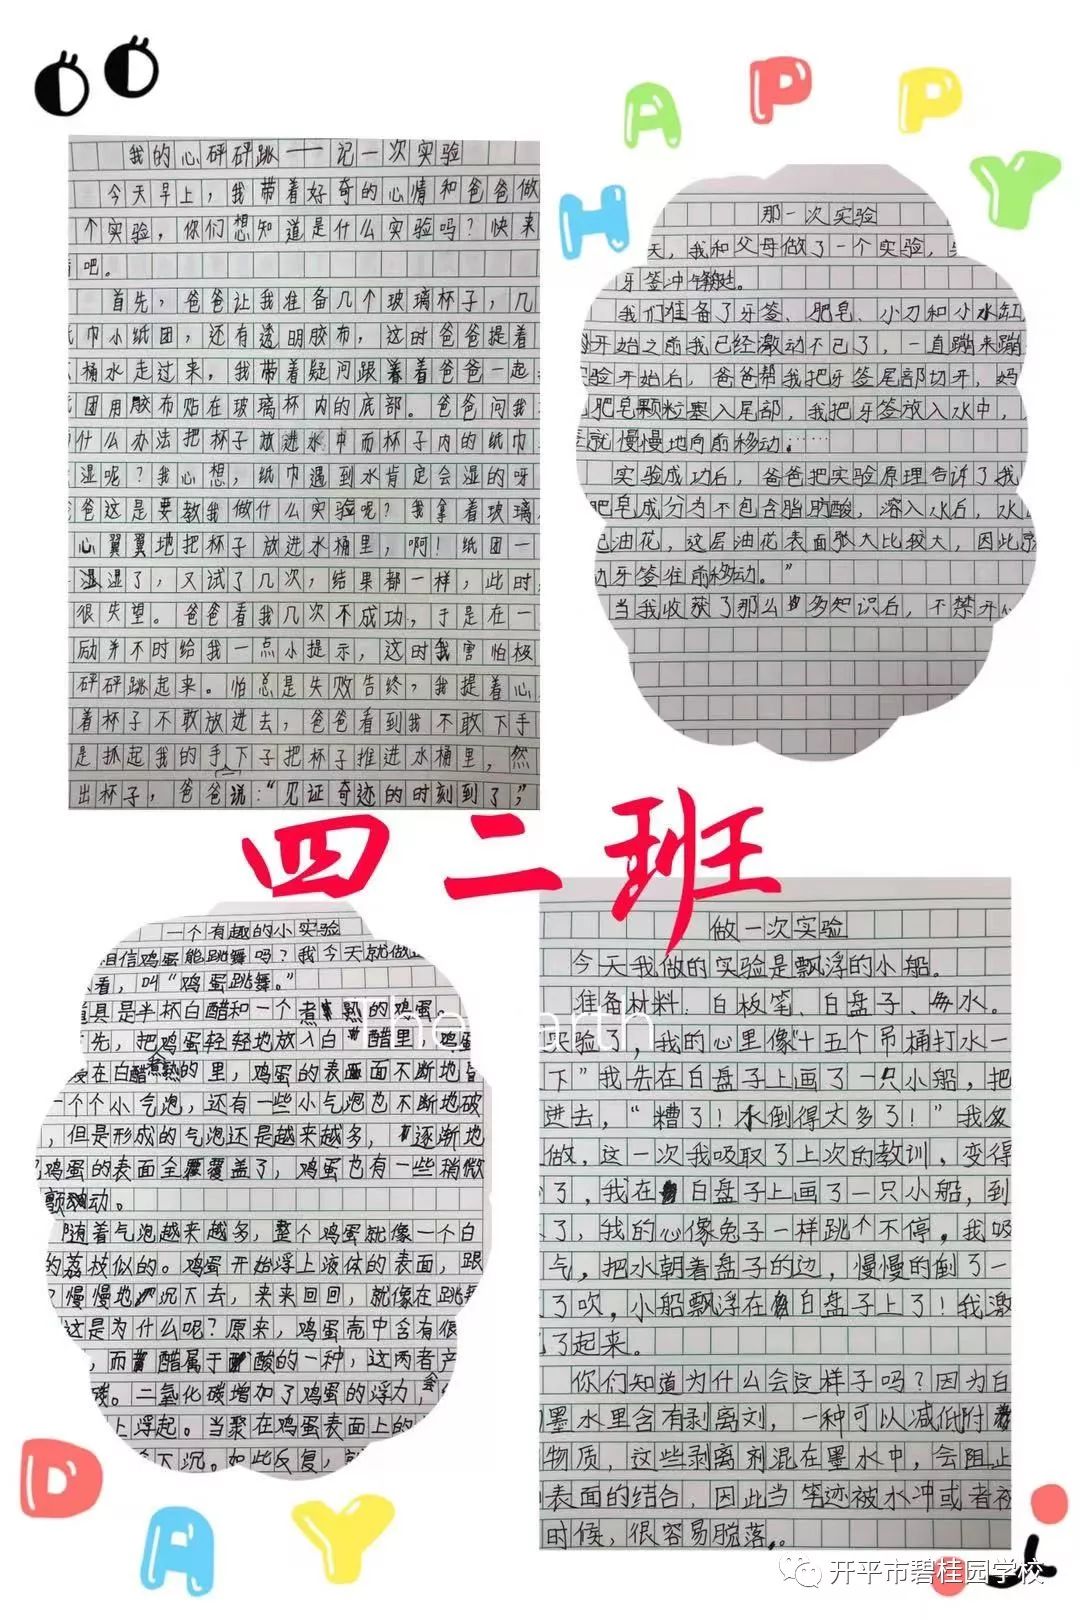 HAPPY
我的心砰砰跳——记一次实验
今天早上，我带着好奇的心情和爸爸做
个实验，你们想知道是什么实验吗？快来
吧。
首先，爸爸让我准备几个玻璃杯子，几
巾小纸团，还有透明胶布，这时爸爸提着
桶水走过来，我带着疑问跟着着爸爸一起
团用胶布贴在玻璃杯内的底部。爸爸问我
什么办法把杯子放进水中而杯子内的纸巾
湿呢？我心想，纸巾遇到水肯定会湿的呀
爸这是要教我做什么实验呢？我拿着玻璃
心翼翼地把杯子放进水桶里，啊！纸团一
湿了，又试了几次，结果都一样，此时
很失望。爸爸看我几次不成功，于是在一
励并不时给我一点小提示，这时我害怕极
砰砰跳起来。怕总是失败告终，我提着心
着杯子不敢放进去，爸爸看到我不敢下手
是抓起我的手一下子把杯子推进水桶里，然
出杯子，爸爸说：“见证奇迹的时刻到了，”
那一次实验
天，我和父母做了一个实验，
牙签冲
我们准备了牙签、肥皂、小刀和小水缸
开始之前我已经激动不已了，一直蹦来蹦
验开始后，爸爸帮我把牙签尾部切开，妈
肥皂颗粒塞入尾部，我把牙签放入水中，
就慢慢地向前移动……
实验成功后，爸爸把实验原理告诉了我
肥皂成分为不包含脂肪酸，溶入水后，水
起油花，这层油花表面张大比较大，因此
动牙签往前移动。”
当我收获了那么多知识后，不禁开心
四二班
一个有趣的小实验
相信鸡蛋能跳舞吗？我今天就做
看，叫“鸡蛋跳舞。”
道具是半杯白醋和一个煮熟的鸡蛋。
先，把鸡蛋轻轻地放入白醋里，鸡蛋
在白醋的里，鸡蛋的表面不断地冒
一个个小气泡，还有一些小气泡也不断地破
，但是形成的气泡还是越来越多，逐渐地
鸡蛋的表面全覆盖了，鸡蛋也有一些稍微
颤动。
随着气泡越来越多，整个鸡蛋就像一个白
的荔枝似的。鸡蛋开始浮上液体的表面，跟
慢慢地沉下去，来来回回，就像在跳舞
这是为什么呢？原来，鸡蛋壳中含有很
，而醋属于酸的一种，这两者产
碳。二氧化碳增加了鸡蛋的浮力，会
上浮起。当聚在鸡蛋表面上的
下沉。如此反复，就
做一次实验
今天我做的实验是飘浮的小船。
准备材料：白板笔、白盘子、水。
实验了，我的心里像“十五个吊桶打水一
下”我先在白盘子上画了一只小船，把
进去，“糟了！水倒得太多了！”我
做，这一次我吸取了上次的教训，变得
了，我在白盘子上画了一只小船，到
了，我的心像兔子一样跳个不停，我吸
气，把水朝着盘子的边，慢慢的倒了一
了吹，小船飘浮在白盘子上了！我激
了起来。
你们知道为什么会这样子吗？因为白
墨水里含有剥离剂，一种可以减低附
物质，这些剥离剂混在墨水中，会阻止
表面的结合，因此当笔迹被水冲或者被
时候，很容易脱落。
DAY
开平市碧桂园学校